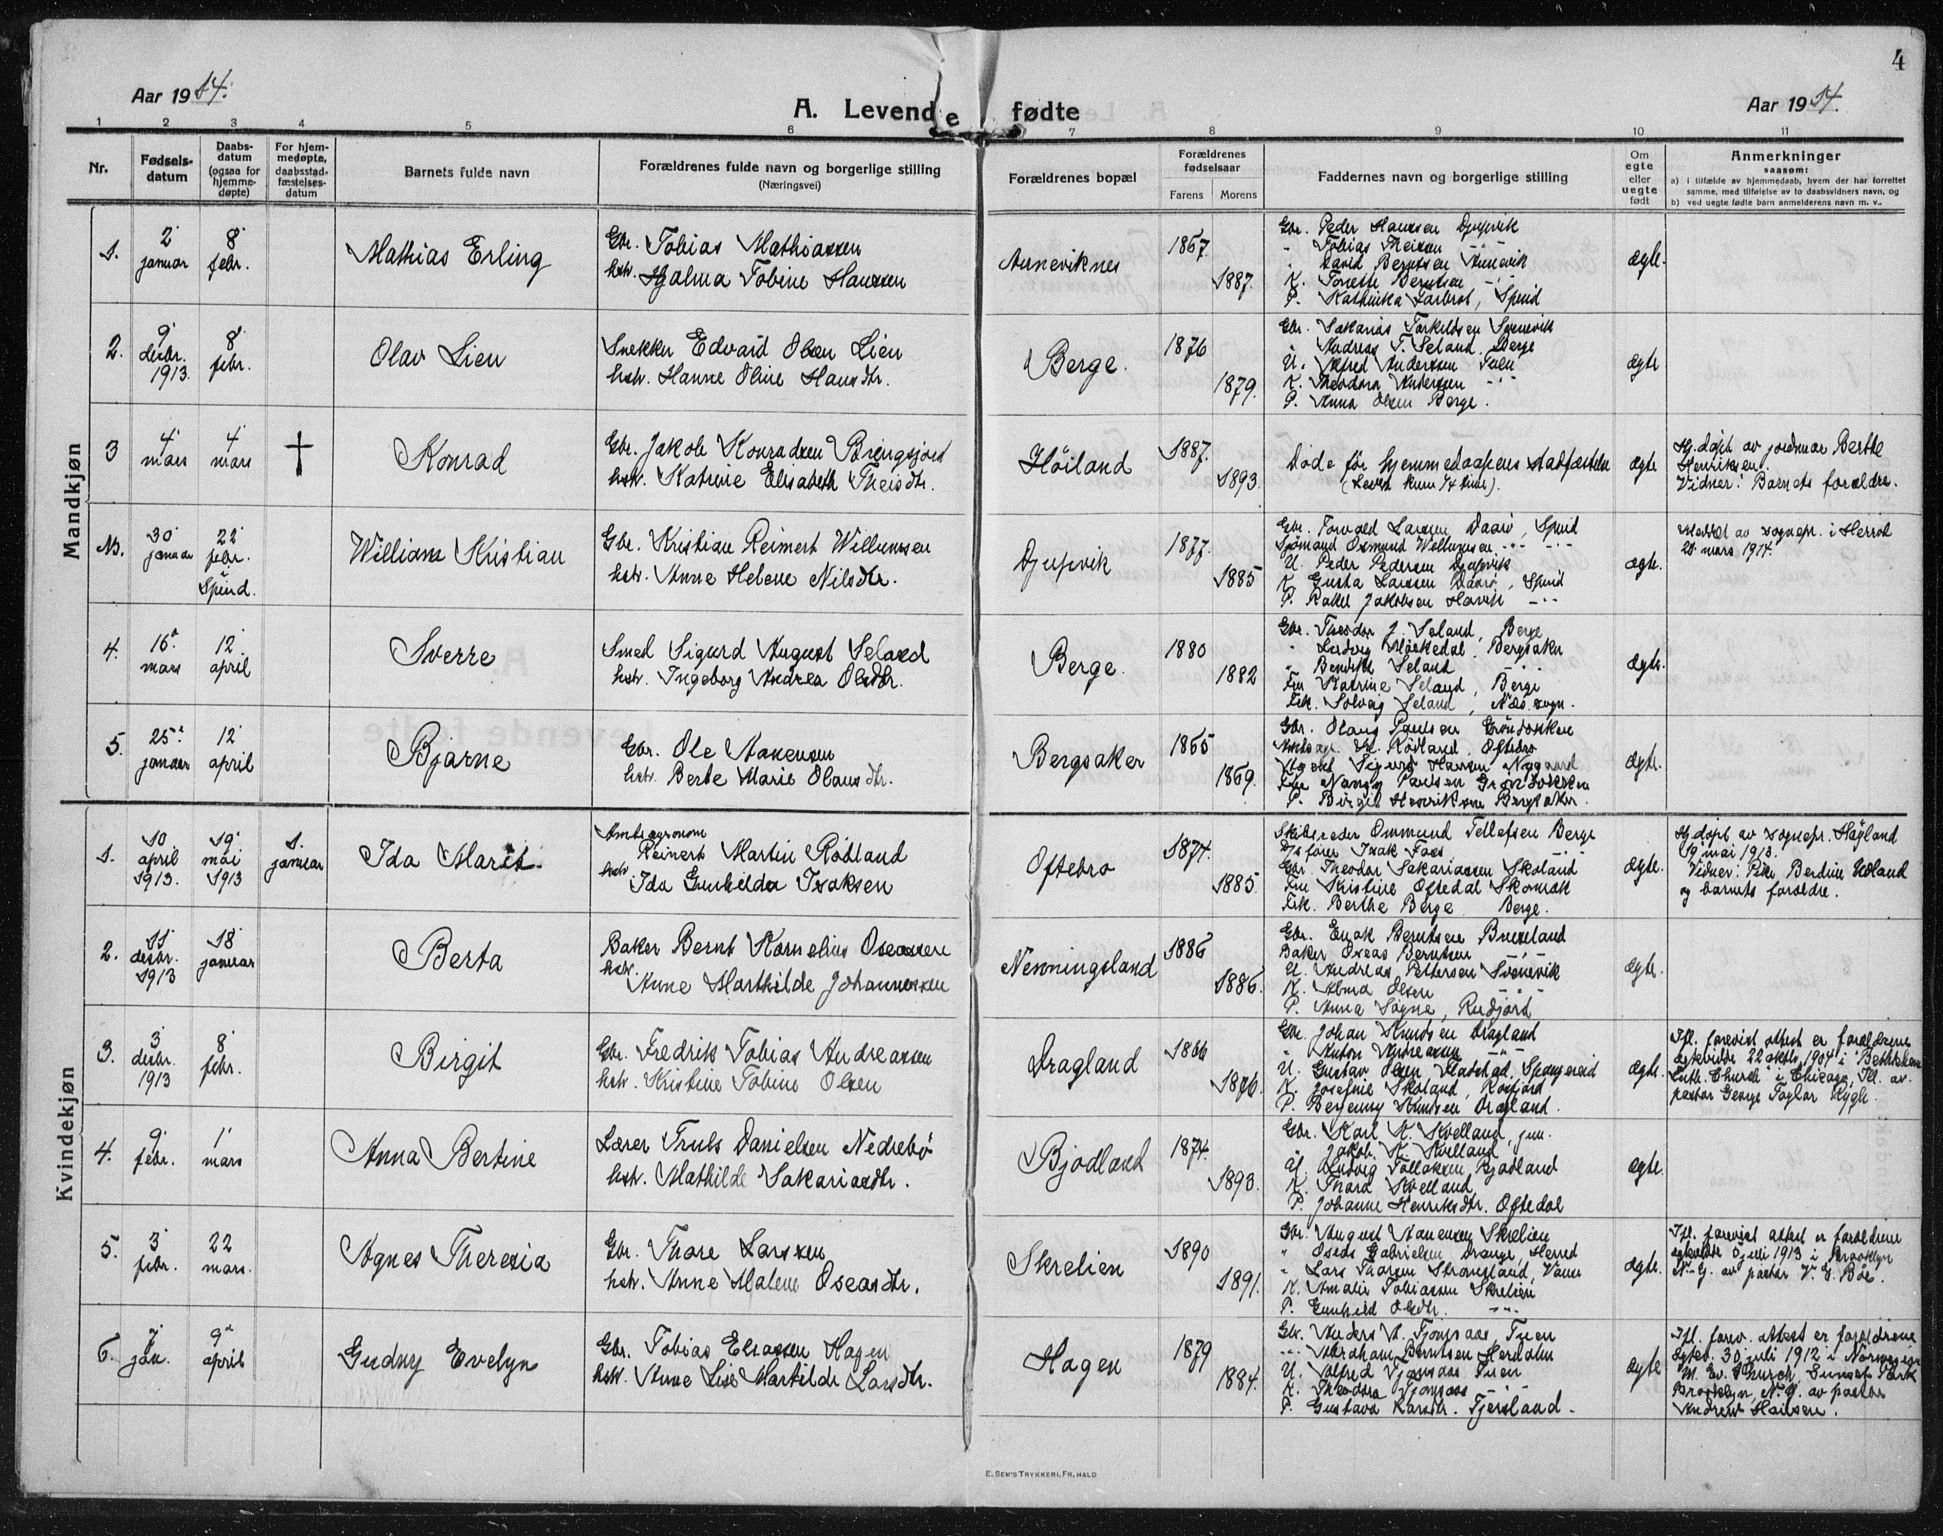 4
Aar 1914.
A. Levende fødte
Aar 1914.
1 2 3 4 5 6 7 8 9 10 11
Nr.
Fødsels-
datum
Daabs-
datum
(ogsaa for
hjemme-
døpte)
For hjem-
medøpte,
daabsstad-
fæstelses-
datum
Barnets fulde navn
Forældrenes fulde navn og borgerlige stilling
(Næringsvei)
Forældrenes bopæl
Forældrenes
fødselsaar
Farens
Morens
Faddernes navn og borgerlige stilling
Om
egte
eller
uegte
født
Anmerkninger
saasom:
a) i tilfælde av hjemmedaab, hvem der har forrettet
samme, med tilføielse av to daabsvidners navn, og
b) ved uegte fødte barn anmelderens navn m. v.
Mandkjøn
1.
2
januar
8
febr.
Mathias Erling
Gbr. Tobias Mathiassen
hstr. Hjalma Tobine Hanssen
Anneviknes
1867.
1887.
Gbr. Peder Hanssen Djupvik
" Tobias Theisen
" David Berntsen Annevik
K. Tonette Berntsen
P. Kathinka Farbrot, Spind
ægte.
2.
9
desbr.
1913.
8
febr.
Olav Lien
Snekker Edvard Olsen Lien
hstr. Hanne Oline Hansdtr.
Berge.
1876
1879.
Gbr. Sakarias Torkildsen Svenevik
" Andreas T. Seland, Berge
U. Alfred Andersen Tuen
K. Theodora Andersen
P. Anna Olsen Berge.
ægte.
3
4
mars
4
mars
†
Konrad
Gbr. Jakob Konradsen Bringsjord
hstr. Katrine Elisabeth Theisdtr.
Høiland
1887.
1893.
Døde før hjemmedaapens stadfæstelse
(Levet kun 1/4 time).
ægte
Hj.døpt av jordmor Berthe
Henriksen.
Vidner: Barnets forældre.
Nb.
30
januar
22
febr.
i
Spind.
William Kristian
Gbr. Kristian Reinert Willumsen
hstr. Anne Helene Nilsdtr.
Djupvik
1877.
1885
Gbr. Torvald Larsen Daarø, Spind
Sjømand Osmund Willumsen
U. Peder Pedersen Djupvik
K. Gusta Larssen Daarø, Spind
P. Rakel Jakobsen Havik
ægte.
Meddelt av sognepr. i Herred
20 mars 1914.
4.
16
mars
12
april
Sverre
Smed Sigurd August Seland
hstr. Ingeborg Andrea Olsdtr.
Berge.
1880
1882
Gbr. Theodor J. Seland, Berge
" Ludvig Møskedal, Bergsaker
" Bendikt Seland
Fru Katrine Seland, Berge
Frk. Solveig Seland, Næs sogn.
ægte.
5.
25
januar
12
april
Bjarne
Gbr. Ole Aanensen
hstr. Berte Marie Olausdtr.
Bergsaker
1865
1869.
Gbr. Olaus Paulsen Grøndokken
Amtsagr. M. Rødland, Oftebro
Agent Sigurd Hansen Nygaard
Fru Nanny Paulsen Grøndokken
P. Birgit Henriksen Bergsaker.
ægte.
Kvindekjøn
1.
10
april
1913.
19
mai
1913
1.
januar
Ida Marit.
Amtsagronom
Reinert Martin Rødland
hstr. Ida Gunhilda Isaksen
Oftebro
1874.
1885.
Skibsreder Ommund Tellefsen Berge
D/sfører Isak Foss
Gbr. Theodor Sakariassen Skoland
Fru Kristine Oftedal Skomrak
Frk. Berthe Berge Berge.
ægte.
Hj.døpt av sognepr. Høyland
19 mai 1913.
Vidner: Pike Berdine Udland
og barnets forældre.
2.
11
desbr.
1913
18
januar
Berta
Baker Bernt Kornelius Oseassen
hstr. Anne Marthilde Johannessen
Nenningsland
1886
1886.
Gbr. Enok Berntsen Briseland
Baker Oseas Berntsen
U. Andreas Pettersen Svenevik
K. Alma Olsen
P. Anna Søgne, Rudjord
ægte.
3.
3
desbr.
1913
8
febr.
Birgit
Gbr. Fredrik Tobias Andreassen
hstr. Kristine Tobine Olsen
Dragland
1866
1876.
Gbr. Johan Knudsen Dragland
" Anton Andreassen
U. Gustav Olsen Vladstad, Spangereid
K. Josefine Skoland, Rosfjord
P. Bergunny Knudsen Dragland.
ægte.
Ifl. forevist attest er forældrene
egteviede 22 oktb. 1904 i "Bethlehem
Luth. Church" i Chicago, Ill. av
pastor George Taylor Rygh.
4.
9
febr.
1
mars
Anna Bertine
Lærer Truls Danielsen Nedrebø
hstr. Mathilde Sakariasdtr.
Bjodland
1874.
1893.
Gbr. Karl K. Kvelland, jun.
Jakob K. Kvelland
U. Ludvig Tollaksen Bjodland
K. Thora Kvelland
P. Johanne Henriksdtr. Oftedal
ægte.
5.
3
febr.
22
mars.
Agnes Theresia
Gbr. Thore Larssen
hstr. Anne Malene Oseasdtr.
Skrelien
1890
1891.
Gbr. August Aanensen Skrelien
" Oseas Gabrielsen Drange, Herred
" Lars Thorsen Strømsland, Vanse
K. Amalie Tobiassen Skrelien
P. Gunhild Olsdtr.
ægte.
Ifl. forevist attest er forældrene
egteviede juli 1913 i Brooklyn
N.Y. av pastor V. E. Bøe.
6.
7
jan.
9
april
Gudny Evelyn
Gbr. Tobias Eliassen Hagen
hstr. Anne Lise Martilde Larsdtr.
Hagen
1879
1884.
Gbr. Anders A. Fjomsaas, Tuen
Abraham Berntsen Herdalen
U. Alfred Fjomsaas Tuen
K. Theodora Fjomsaas
P. Gustava Larsdtr. Fjersland.
ægte
Ifl. forev. attest er forældrene
egtev. 30 juli 1912 i Norwegian
M. Ev. Church, Sunset Park
Brooklyn, N.Y. av pastor
Andrew Hansen.
E. SEM'S TRYKKERI, FR.HALD